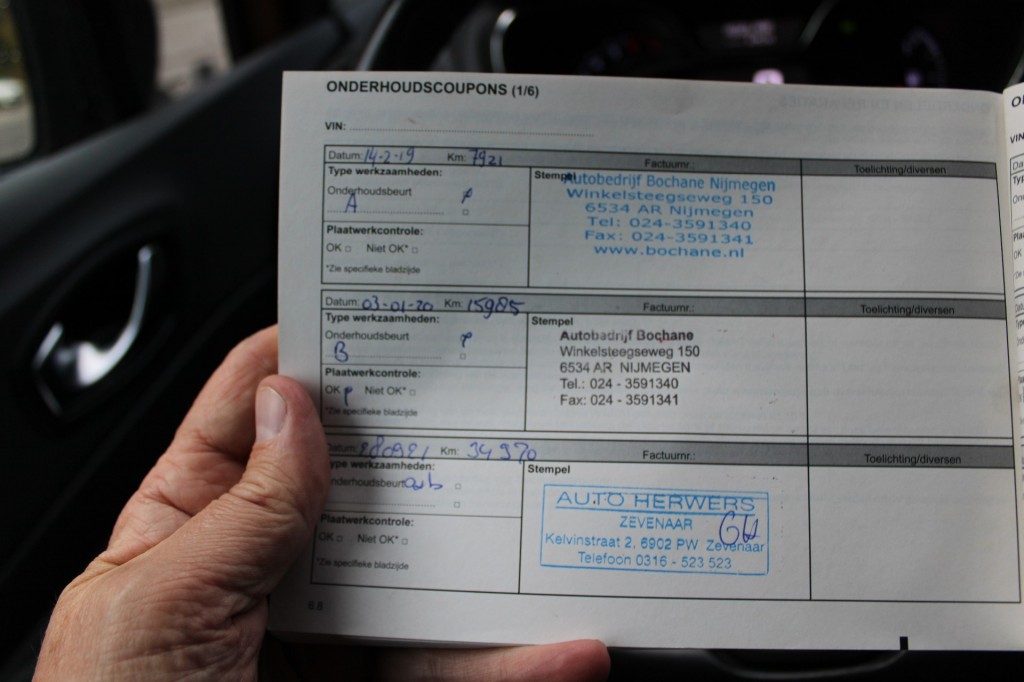 ONDERHOUDSCOUPONS (1/6)
VIN:
Datum: 14-2-19 Km: 7921 Factuurnr.: Toelichting/diversen
Type werkzaamheden: Stempel
Onderhoudsbeurt
A
Autobedrijf Bochane Nijmegen
Winkelsteegseweg 150
6534 AR Nijmegen
Tel: 024-3591340
Fax: 024-3591341
www.bochane.nl
Plaatwerkcontrole:
OK Niet OK*
*Zie specifieke bladzijde
Datum: 03-01-20 Km: 15985 Factuurnr.: Toelichting/diversen
Type werkzaamheden: Stempel
Onderhoudsbeurt
B
Autobadrijf Bochane
Winkelsteegseweg 150
6534 AR NIJMEGEN
Tel.: 024 - 3591340
Fax: 024 - 3591341
Plaatwerkcontrole:
OK Niet OK*
*Zie specifieke bladzijde
Datum: 280921 Km: 34970 Factuurnr.: Toelichting/diversen
ype werkzaamheden: Stempel
nderhoudsbeurt
AUTO HERWERS
ZEVENAAR
Kelvinstraat 2, 6902 PW Zevenaar
Telefoon 0316 - 523 523
Plaatwerkcontrole:
OK Niet OK*
*Zie specifieke bladzijde
6.8